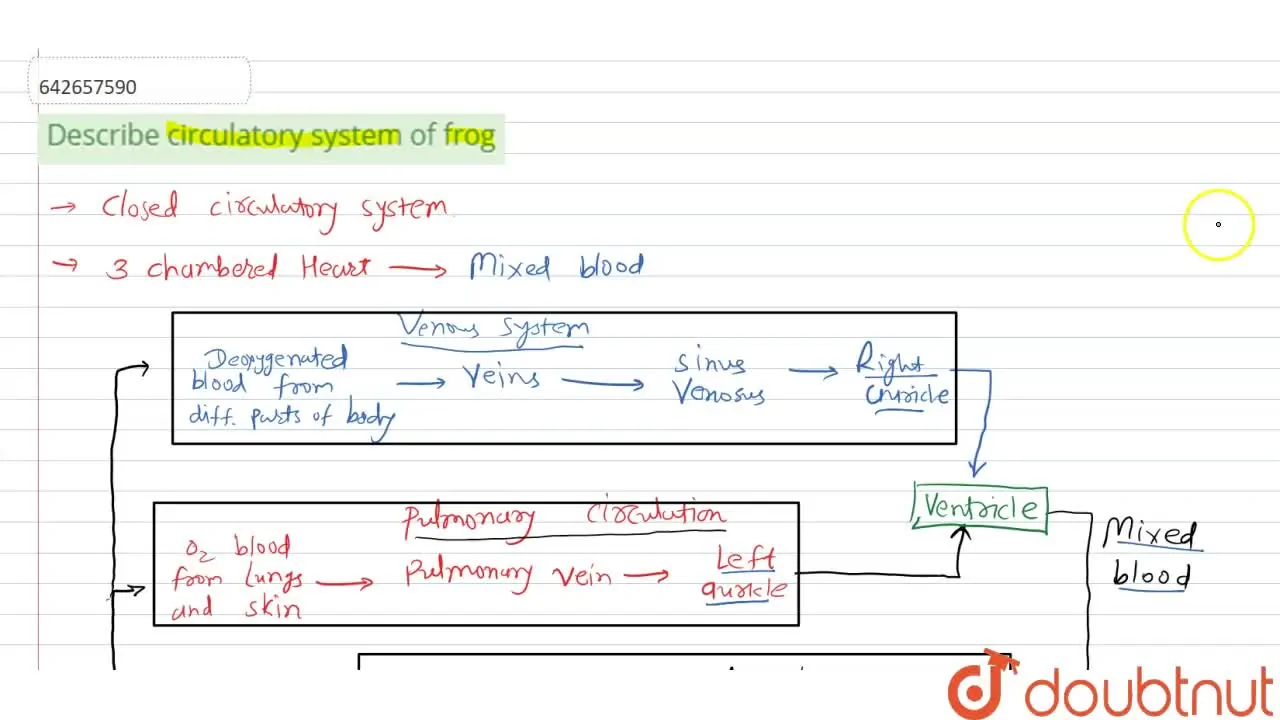 642657590
Describe circulatory system of frog
→ Closed circulatory system
→ 3 chambered Heart → Mixed blood
Venous system
Deoxygenated
blood from
diff. parts of body
→ Veins →
sinus
Venosus
→ Right
auricle
Ventricle
Mixed
blood
Pulmonary circulation
O2 blood
from lungs
and skin
→ Pulmonary vein →
Left
auricle
doubtnut